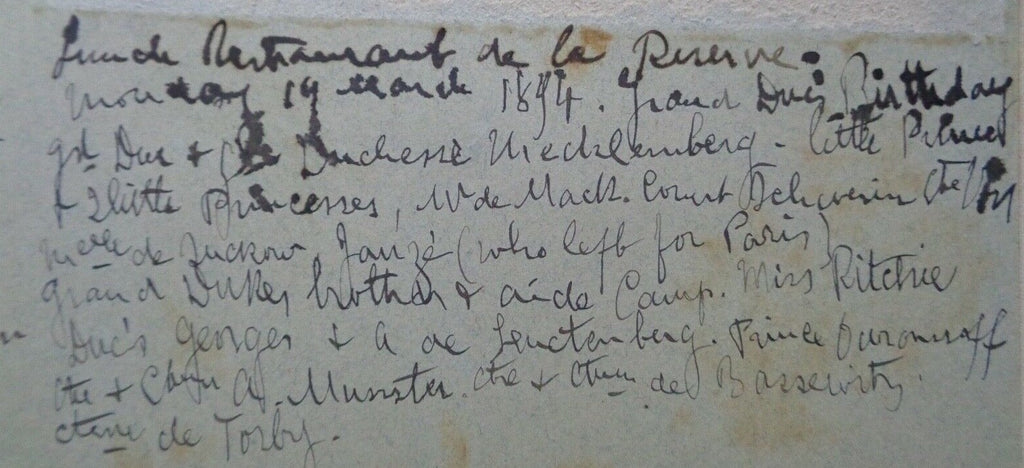 Restaurant de la Reserve.
Monday 19 March 1894. Grand Duc's Birthday
gd Duc & Duchesse Mecklemberg. little Prince
& 2 little Princesses, de Mack. Count Schwerin Cte
de Zuckow, Janzé (who left for Paris)
Grand Dukes brother & aide Camp. Miss Ritchie
Duc's Georges & A de Leuctenberg. Prince Ouroussoff
Cte & A. Munster. Cte & Ctesse de Bassewitz.
Ctesse de Torby.